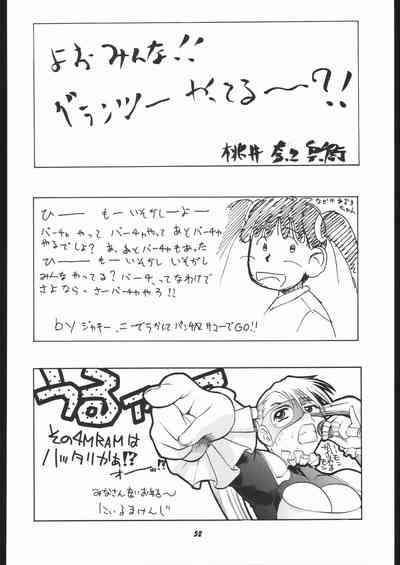 よお みんな!!
グランツー やってる〜?!
桃井
ひーー もー いそがしーよー
バーチャ やって バーチャやって あと バーチャ
やるでしょ? あ、あと バーチャもあった
ひーー もー いそがし いそがし
みんな やってる? バーチ、ってなわけで
さよなら・さーバーチャやろ!!
by ジャッキー
でGO!!
ちゃん
うるァァ
その4MRAMは
ハッタリかぁ!?
オー
みなさん
にぃるまけんじ
52